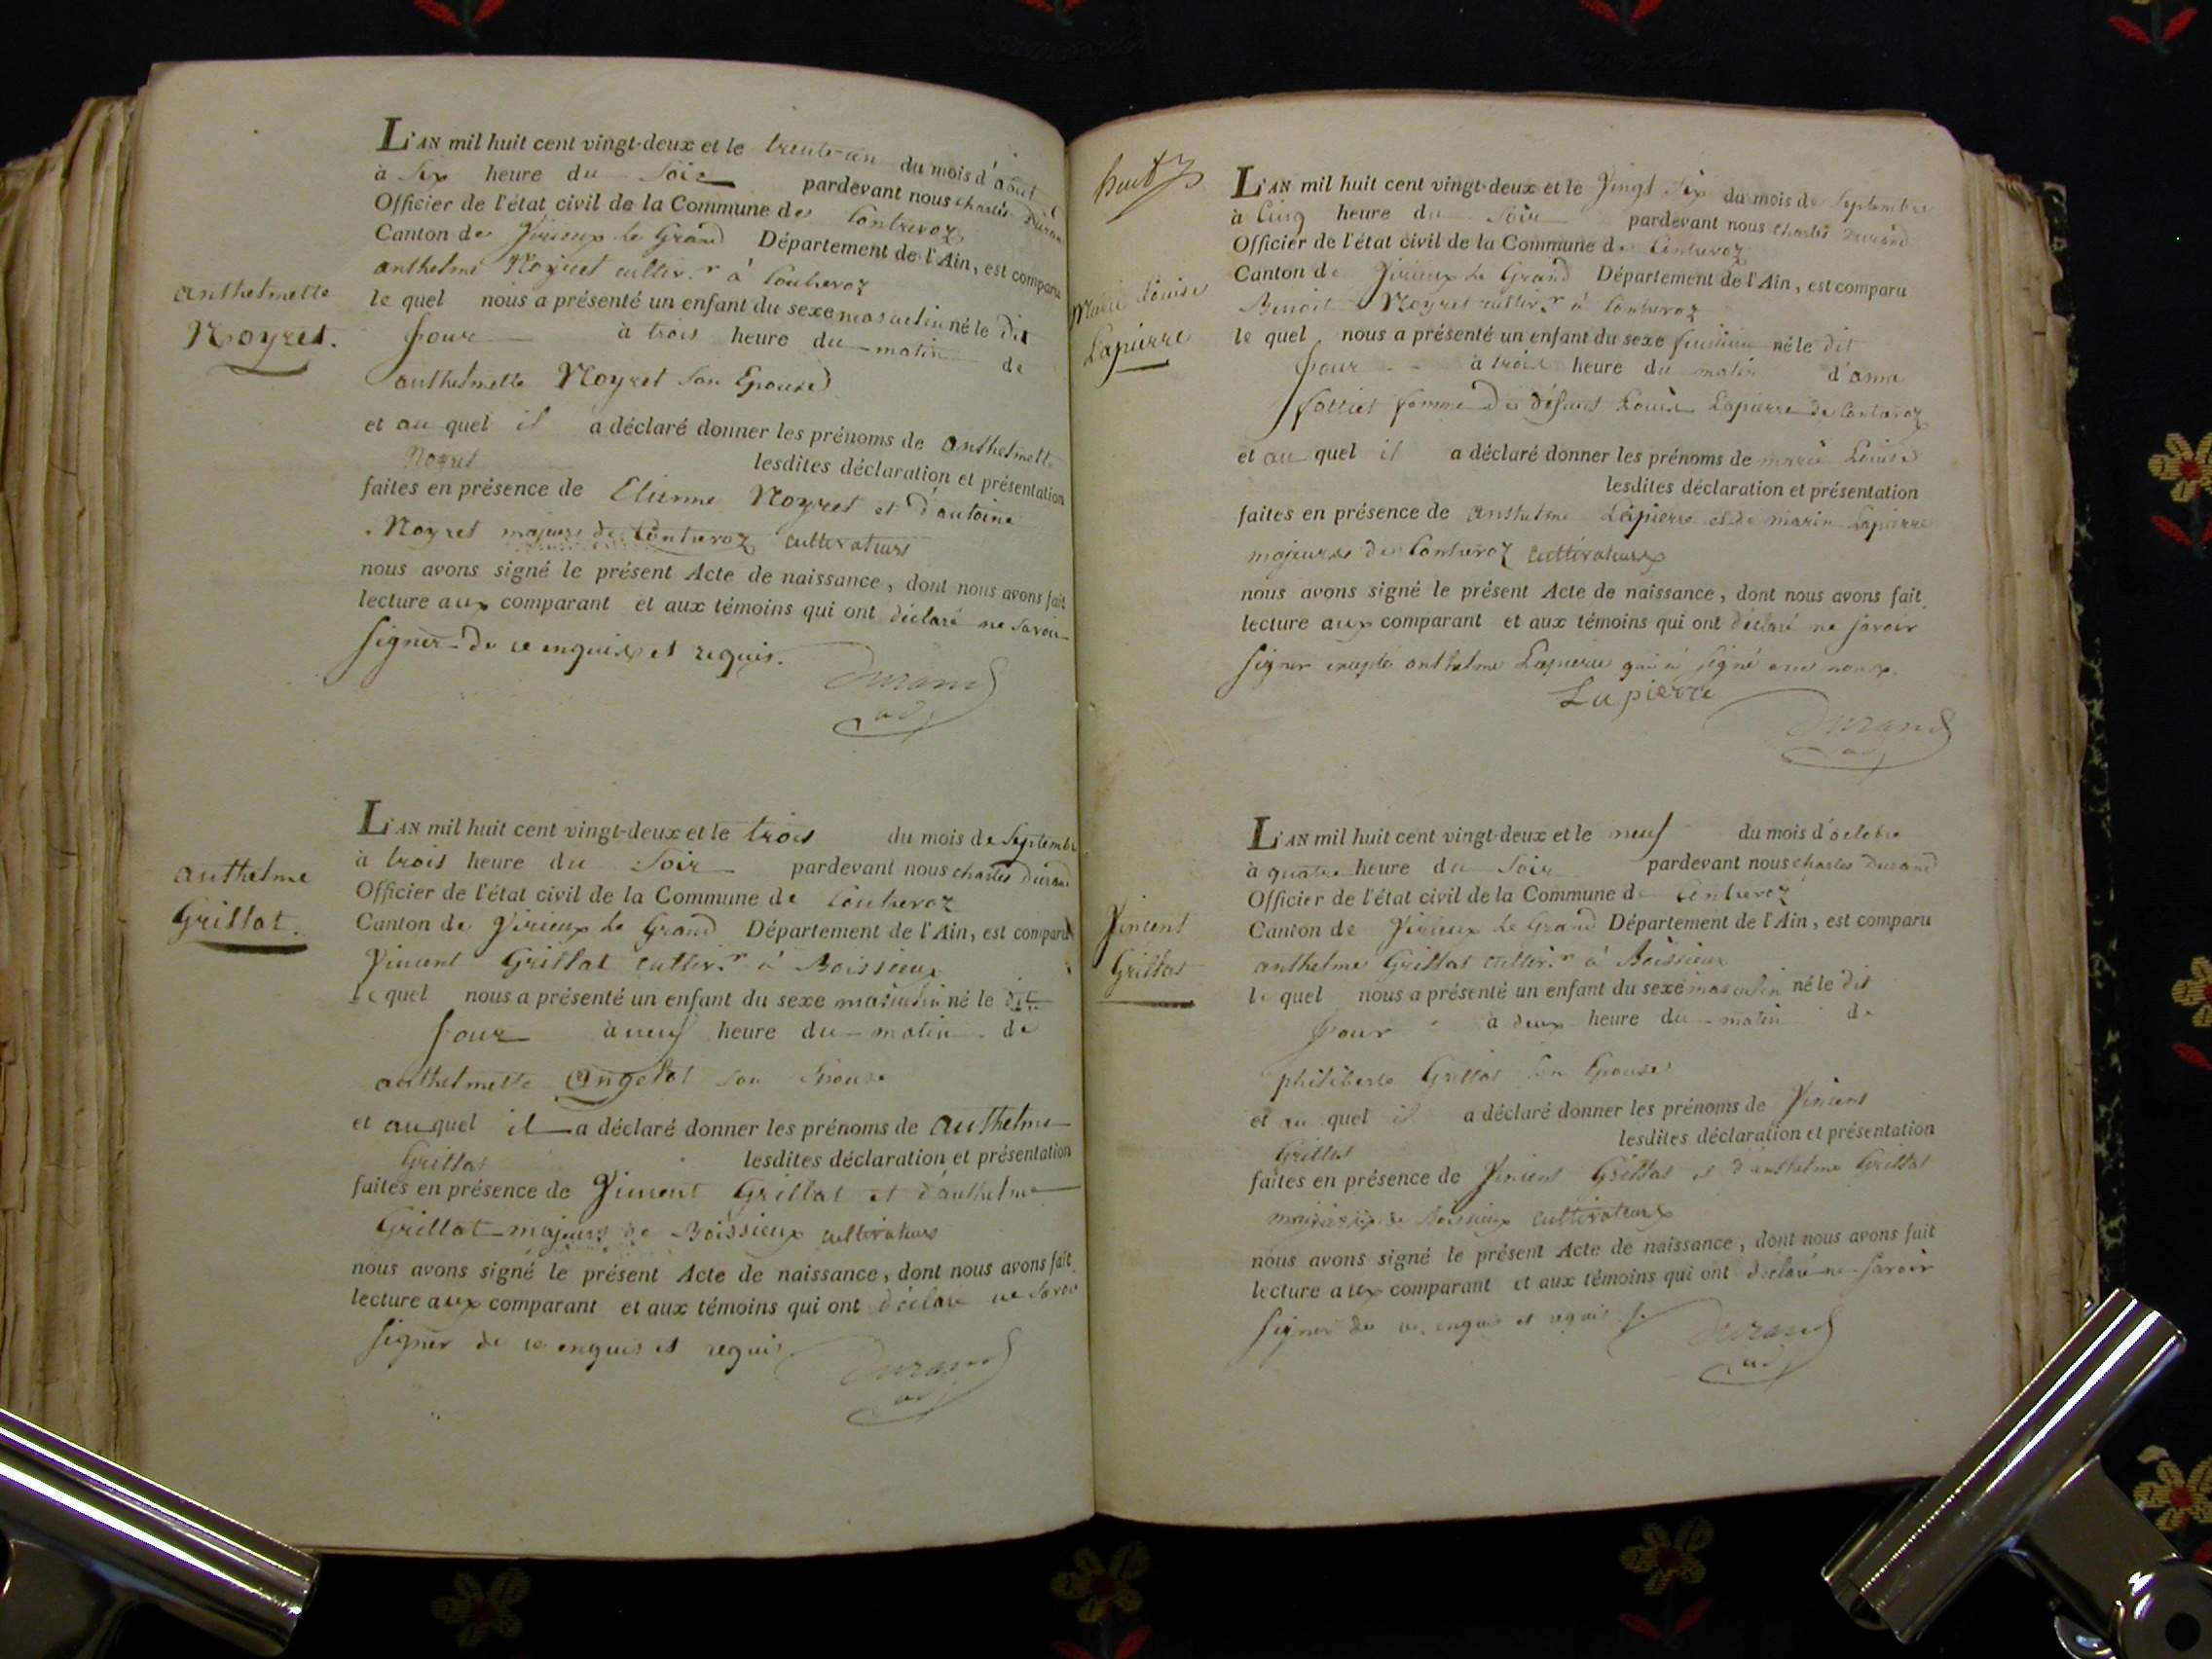 anthelmette
Noyret.
L'AN mil huit cent vingt-deux et le trente-un du mois d'aout
à Six heure du Soir pardevant nous charles Durand
Officier de l'état civil de la Commune de Contrevoz
Canton de Virieux le Grand Département de l'Ain, est comparu
anthelme Noyret cultiv.r à Contrevoz
le quel nous a présenté un enfant du sexe masculin né le dit
Jour à trois heure du matin de
anthelmette Noyret son Epouse
et au quel il a déclaré donner les prénoms de anthelmette
Noyret lesdites déclaration et présentation
faites en présence de Etienne Noyret et d'antoine
Noyret majeurs de Contrevoz cultivateurs
nous avons signé le présent Acte de naissance, dont nous avons fait
lecture aux comparant et aux témoins qui ont déclaré ne savoir
signer de ce enquis et requis.
Durand
adj
anthelme
Grillot.
L'AN mil huit cent vingt-deux et le trois du mois de Septembre
à trois heure du Soir pardevant nous charles Durand
Officier de l'état civil de la Commune de Contrevoz
Canton de Virieux le Grand Département de l'Ain, est comparu
Vincent Grillat cultiv.r à Boissieux
le quel nous a présenté un enfant du sexe masculin né le dit
Jour à neuf heure du matin de
anthelmette Angelot son Epouse
et au quel il a déclaré donner les prénoms de anthelme
Grillat lesdites déclaration et présentation
faites en présence de Vincent Grillat et d'anthelme
Grillat majeurs de Boissieux cultivateurs
nous avons signé le présent Acte de naissance, dont nous avons fait
lecture aux comparant et aux témoins qui ont déclaré ne savoir
signer de ce enquis et requis
Durand
adj
Marie Louise
Lapierre
L'AN mil huit cent vingt-deux et le Vingt Six du mois de Septembre
à Cinq heure du Soir pardevant nous charles Durand
Officier de l'état civil de la Commune de Contrevoz
Canton de Virieux le Grand Département de l'Ain, est comparu
Benoit Noyret cultiv.r à Contrevoz
le quel nous a présenté un enfant du sexe feminin né le dit
Jour à trois heure du matin d'anne
femme de défunt Louis Lapierre de Contrevoz
et au quel il a déclaré donner les prénoms de marie Louise
lesdites déclaration et présentation
faites en présence de anthelme Lapierre et de marin Lapierre
majeures de Contrevoz cultivateurs
nous avons signé le présent Acte de naissance, dont nous avons fait
lecture aux comparant et aux témoins qui ont déclaré ne savoir
signer excepté anthelme Lapierre qui a signé avec nous.
Lapierre
Durand
adj
Vincent
Grillat
L'AN mil huit cent vingt-deux et le neuf du mois d'octobre
à quatre heure du Soir pardevant nous charles Durand
Officier de l'état civil de la Commune de Contrevoz
Canton de Virieux le Grand Département de l'Ain, est comparu
anthelme Grillat cultiv.r à Boissieux
le quel nous a présenté un enfant du sexe masculin né le dit
Jour à deux heure du matin de
philiberte Grillat son Epouse
et au quel il a déclaré donner les prénoms de Vincent
Grillat lesdites déclaration et présentation
faites en présence de Vincent Grillat et d'anthelme Grillat
majeurs de Boissieux cultivateurs
nous avons signé le présent Acte de naissance, dont nous avons fait
lecture aux comparant et aux témoins qui ont déclaré ne savoir
signer de ce enquis et requis
Durand
adj